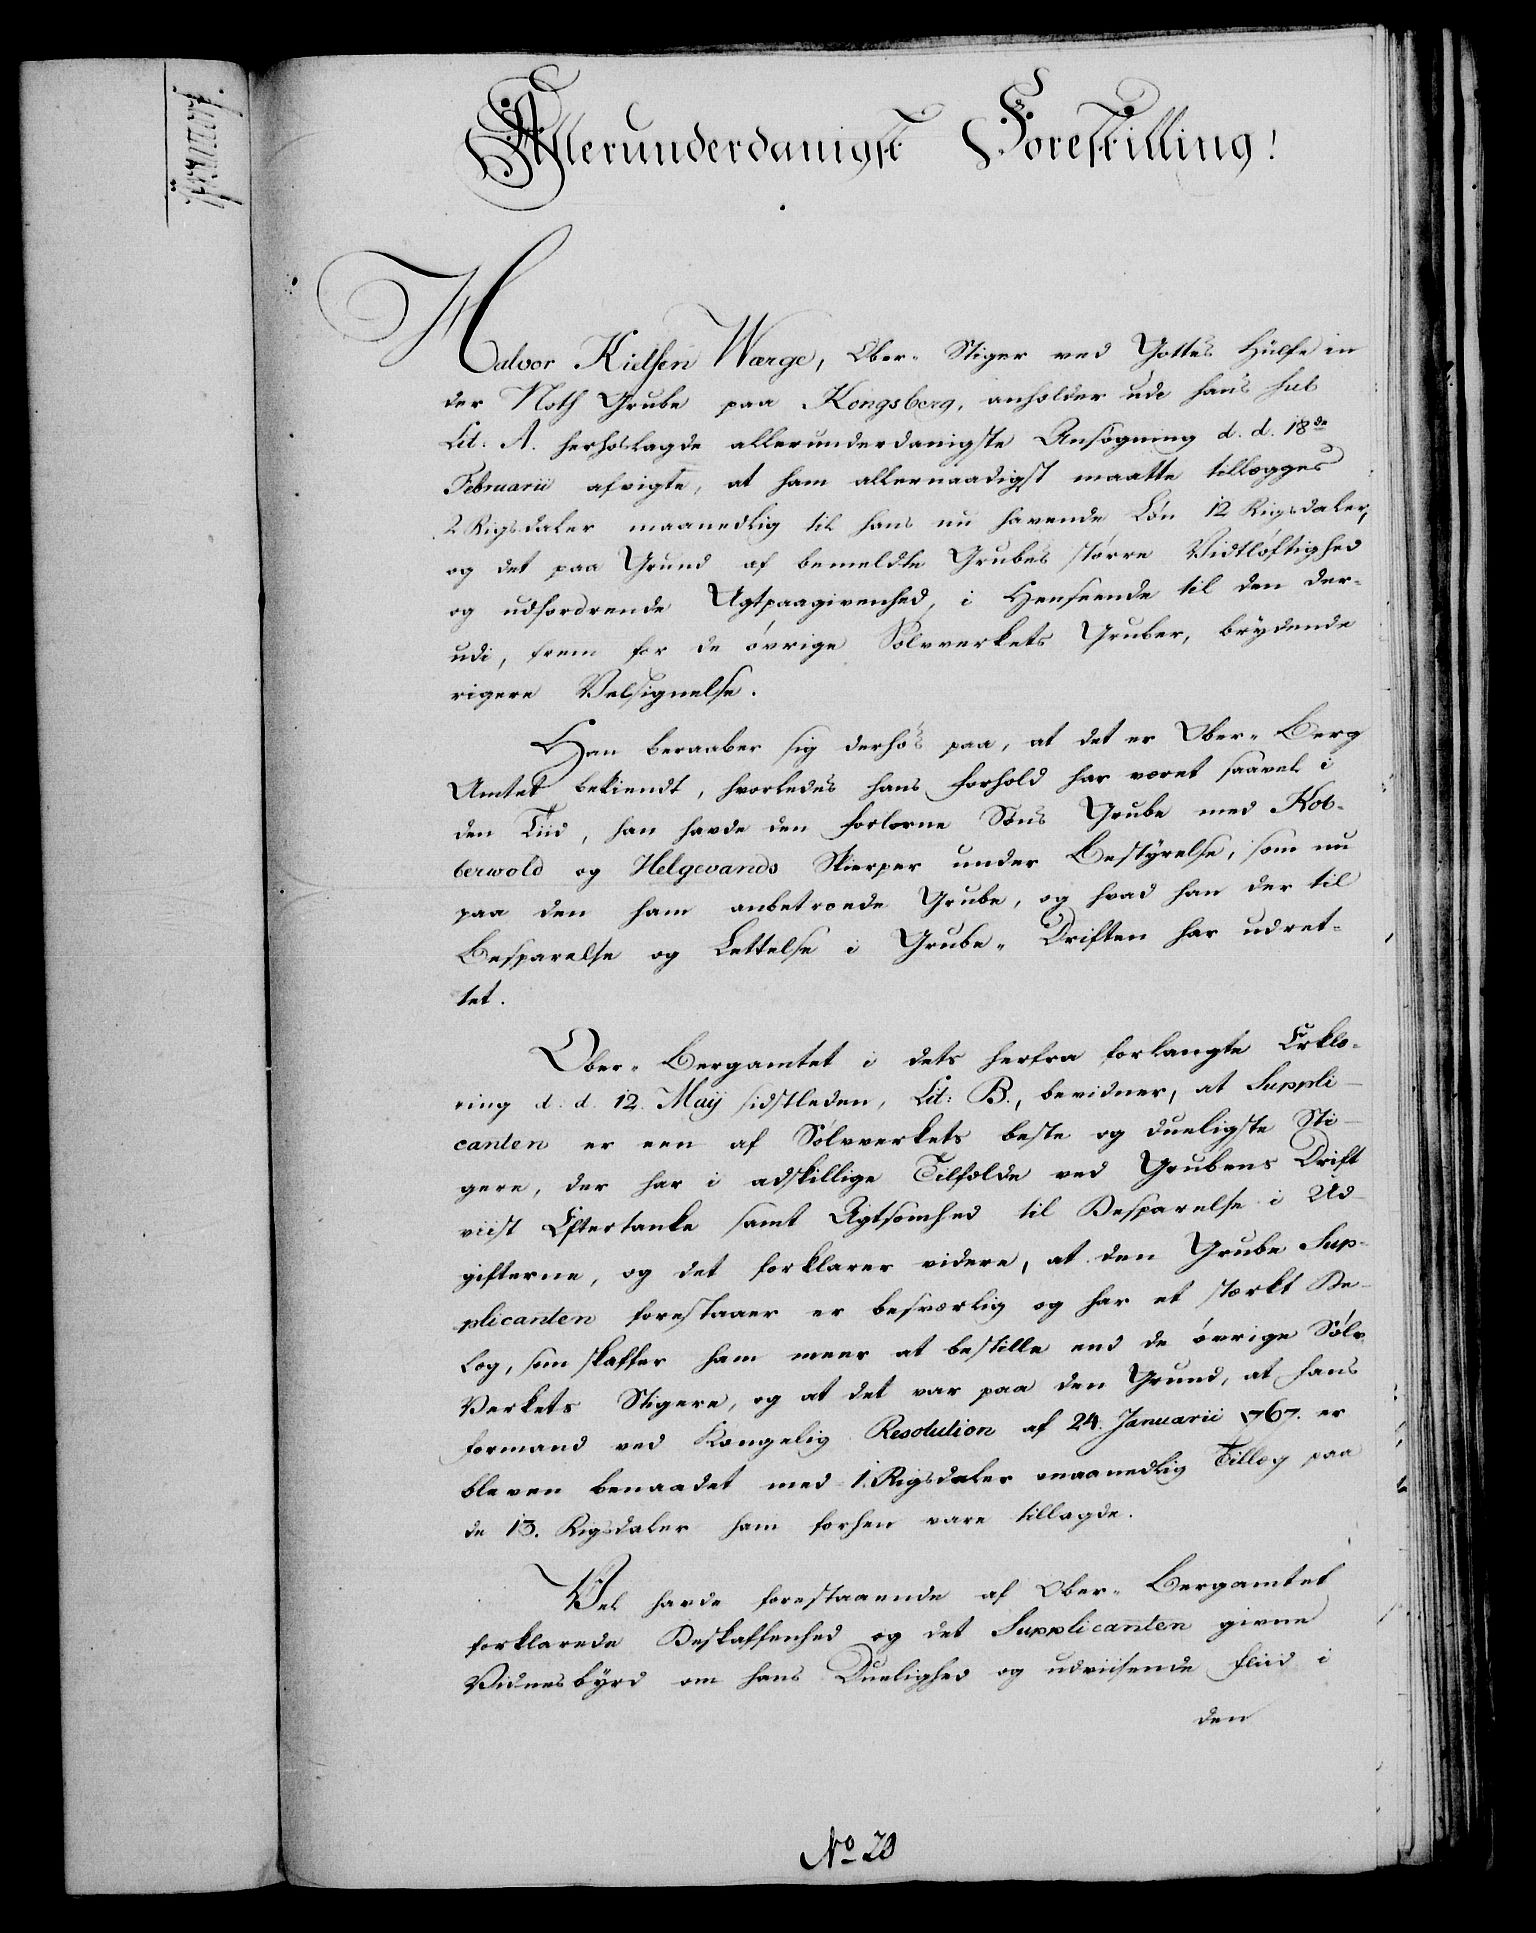 Allerunderdanigst Forestilling!
Halvor Kielsen Wærge, Ober-Stiger ved Gottes Hülfe in
der Noth Grube paa Kongsberg, anholder udi hans sub
Lit: A. herhoslagde allerunderdanigste Ansøgning d. d. 18de
Februarii afvigte, at ham allernaadigst maatte tillægges
2 Rigsdaler maanedlig til hans nu havende Løn 12 Rigsdaler,
og det paa Grund af bemeldte Grubes større Vidtløftighed
og udfordrende Agtpaagivenhed, i Henseende til den der-
udi, frem for de øvrige Sølvverkets Gruber, brydende
rigere Velsignelse.
Han beraaber sig derhos paa, at det er Ober-Berg
Amtet bekiendt, hvorledes hans Forhold har været saavel i
den Tiid, han havde den forlorne Søns Grube med Kob-
berwold og Helgevands Skierper under Bestyrelse, som nu
paa den ham anbetroede Grube, og hvad han der til
Besparelse og Lettelse i Grube-Driften har udret-
tet.
Ober-Bergamtet i dets herfra forlangte Erklæ-
ring d. d. 12. Maij sidstleden, Lit: B., bevidner, at Suppli-
canten er een af Sølvverkets beste og dueligste Sti-
gere, der har i adskillige Tilfælde ved Grubens Drift
viist Eftertanke samt Agtsomhed til Besparelse i Ud-
gifterne, og det forklarer videre, at den Grube Sup-
plicanten forestaaer er besværlig og har et stærkt Be-
læg, som skaffer ham meer at bestille end de øvrige Sølv-
Verkets Stigere, og at det var paa den Grund, at hans
Formand ved Kongelig Resolution af 24. Januarii 1767. er
bleven benaadet med 1. Rigsdaler maanedlig Tillæg paa
de 13. Rigsdaler ham forhen vare tillagde.
Vel havde forestaaende af Ober-Bergamtet
forklarede Beskaffenhed og det Supplicanten givne
Vidnesbyrd om hans Duelighed og udviisende Fliid i
den
No 20